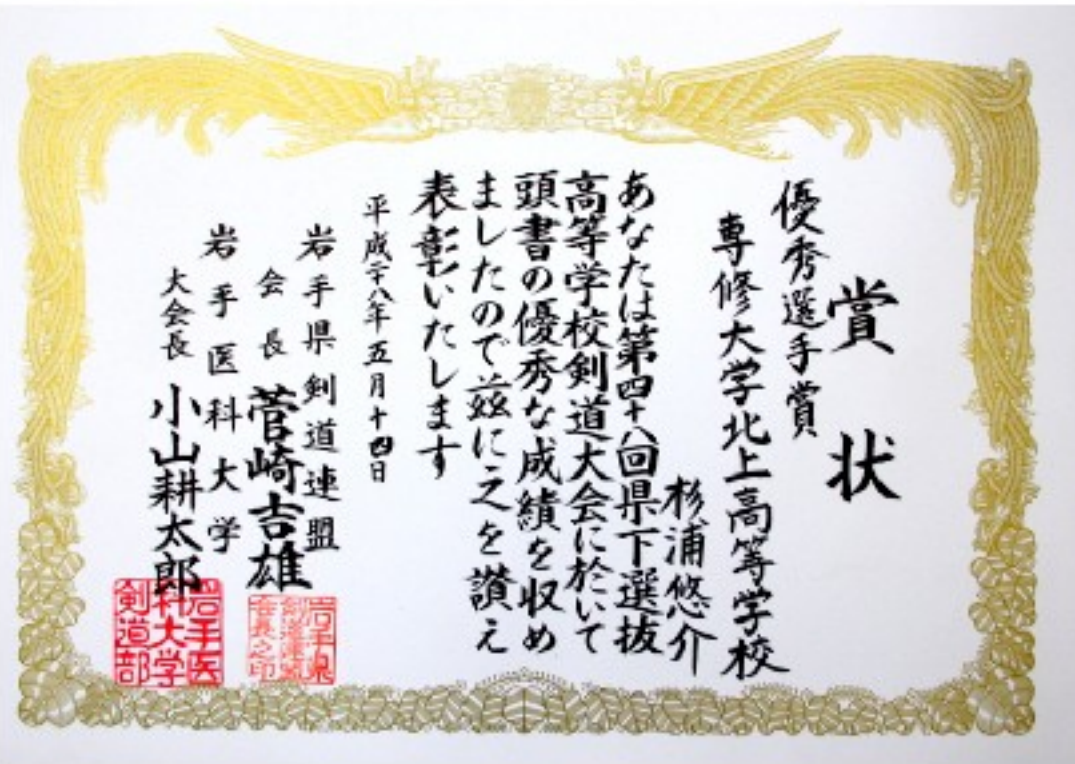 賞状
優秀選手賞
専修大学北上高等学校
杉浦悠介
あなたは第四十八回県下選抜
高等学校剣道大会に於いて
頭書の優秀な成績を収め
ましたので茲に之を讃え
表彰いたします
平成二十八年五月十四日
岩手県剣道連盟
会長 菅崎吉雄
岩手医科大学
大会長 小山耕太郎
岩手県
剣道連盟
会長之印
岩手医
科大学
剣道部